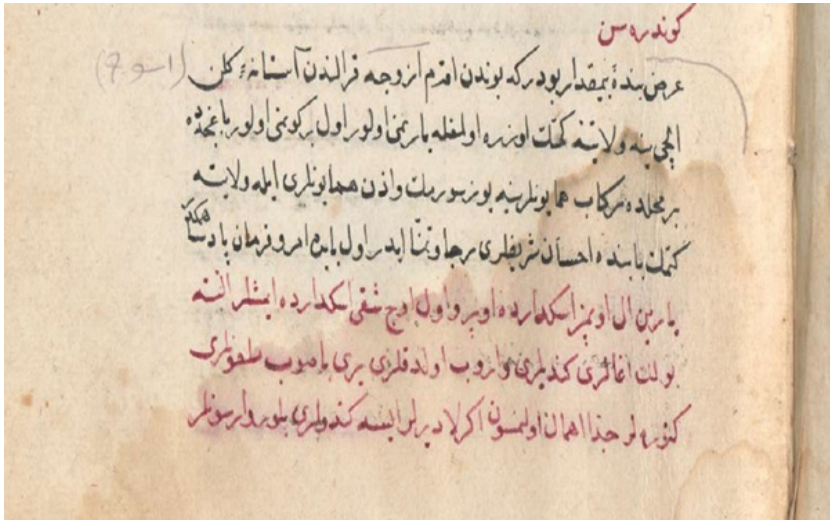 كوندره سن
عرض بندۀ بيمقدار بودر كه بوندن اقدم اوزوجه قرالندن آستانه‌ء كلن
ايلچى ينه ولايتنه كتمك اوزره اولمغله يارينمى اولور اول بر كونمى اولور باغچه‌ده
بر محلده ركاب همايونلرينه يوز سورمك واذن همايونلرى ايله ولايتنه
كتمك بابنده احسان شريفلرى رجا وتمنا ايدر اول بابده امر وفرمان پادشاهمكدر
يارين ال اوپمز اسكدارده اوپر واول اوچ شقى اسكدارده ايمشلر البته
بولك اغالرى كنديلرى واروب اولدقلرى يرى باصوب ملعونلرى
كتوره‌لر حذا اهمال اولنمسون اكر لا ديرلر ايسه كندولرى بلور وارسونلر